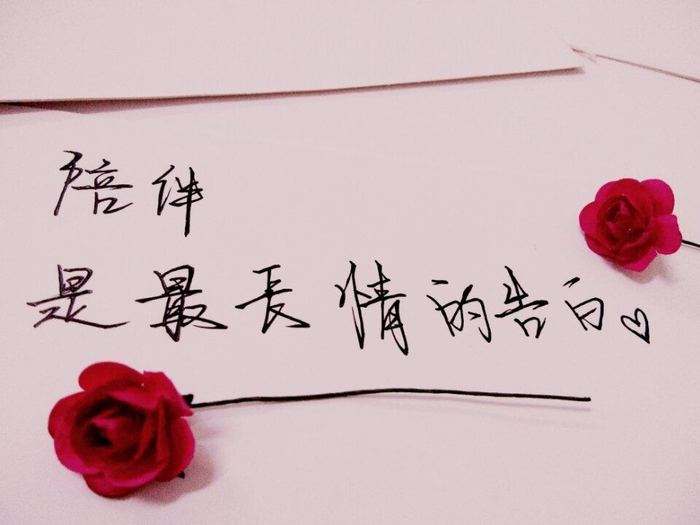 陪伴
是最長情的告白♡